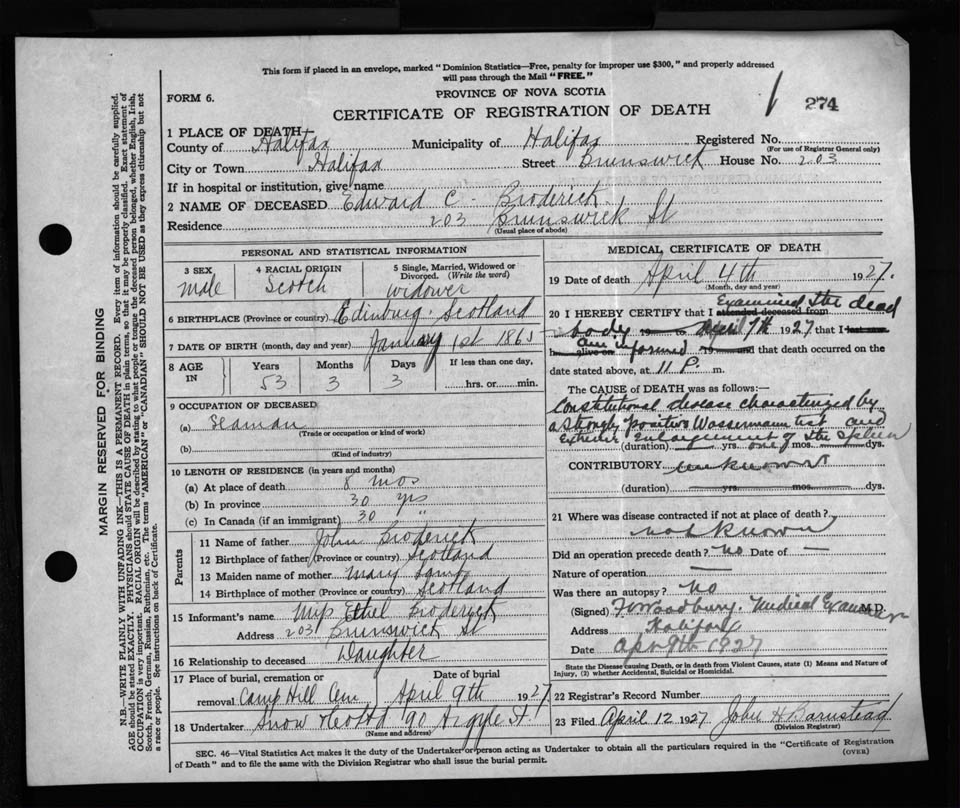 This form if placed in an envelope, marked "Dominion Statistics—Free, penalty for improper use $300," and properly addressed
will pass through the Mail "FREE."
FORM 6.
PROVINCE OF NOVA SCOTIA
CERTIFICATE OF REGISTRATION OF DEATH
274
1 PLACE OF DEATH
County of Halifax Municipality of Halifax Registered No.
(For use of Registrar General only)
City or Town Halifax Street Brunswick House No. 203
If in hospital or institution, give name
2 NAME OF DECEASED Edward C. Broderick
Residence 203 Brunswick St
(Usual place of abode)
PERSONAL AND STATISTICAL INFORMATION
3 SEX male
4 RACIAL ORIGIN Scotch
5 Single, Married, Widowed or Divorced. (Write the word) widower
6 BIRTHPLACE (Province or country) Edinburg. Scotland
7 DATE OF BIRTH (month, day and year) January 1st 1865
8 AGE IN Years 53 Months 3 Days 3 If less than one day, hrs. or min.
9 OCCUPATION OF DECEASED
(a) Seaman
(Trade or occupation or kind of work)
(b)
(Kind of industry)
10 LENGTH OF RESIDENCE (in years and months)
(a) At place of death 8 mos
(b) In province 30 yrs
(c) In Canada (if an immigrant) 30 "
Parents
11 Name of father John Broderick
12 Birthplace of father (Province or country) Scotland
13 Maiden name of mother Mary
14 Birthplace of mother (Province or country) Scotland
15 Informant's name Ethel Broderick
Address 203 Brunswick St
16 Relationship to deceased Daughter
17 Place of burial, cremation or removal Camp Hill Cem
Date of burial April 9th 1927
18 Undertaker Snow & Co Ltd 90 Argyle St.
(Name and address)
MEDICAL CERTIFICATE OF DEATH
19 Date of death April 4th 1927.
(Month, day and year)
Examined the dead
20 I HEREBY CERTIFY that I attended deceased from
body 19 to April 7th 1927 that I last saw
am informed
h alive on 19 and that death occurred on the
date stated above, at 11 P. m.
The CAUSE of DEATH was as follows:—
Constitutional disease characterized by
a Strongly positive Wassermann test and
Extreme Enlargement of the Spleen
(duration) yrs. mos. dys.
CONTRIBUTORY unknown
(duration) yrs. mos. dys.
21 Where was disease contracted if not at place of death?
not known
Did an operation precede death? No Date of —
Nature of operation —
Was there an autopsy? No
(Signed) Woodbury. Medical Examiner M.D.
Address Halifax
Date Apr 9th 1927
State the Disease causing Death, or in death from Violent Causes, state (1) Means and Nature of
Injury, (2) whether Accidental, Suicidal or Homicidal.
22 Registrar's Record Number
23 Filed April 12 1927 John H Barnstead
(Division Registrar)
SEC. 46—Vital Statistics Act makes it the duty of the Undertaker or person acting as Undertaker to obtain all the particulars required in the "Certificate of Registration
of Death" and to file the same with the Division Registrar who shall issue the burial permit.
(OVER)
MARGIN RESERVED FOR BINDING
N.B.—WRITE PLAINLY WITH UNFADING INK—THIS IS A PERMANENT RECORD. Every item of information should be carefully supplied.
AGE should be stated EXACTLY. PHYSICIANS should STATE CAUSE OF DEATH in plain terms, so that it may be properly classified. Exact statement of
OCCUPATION is very important. RACIAL ORIGIN will be described by stating to what people or tongue the deceased person belonged, whether English, Irish,
Scotch, French, German, Russian, Ruthenian, etc. The terms "AMERICAN" or "CANADIAN" SHOULD NOT BE USED as they express citizenship but not
a race or people. See instructions on back of Certificate.